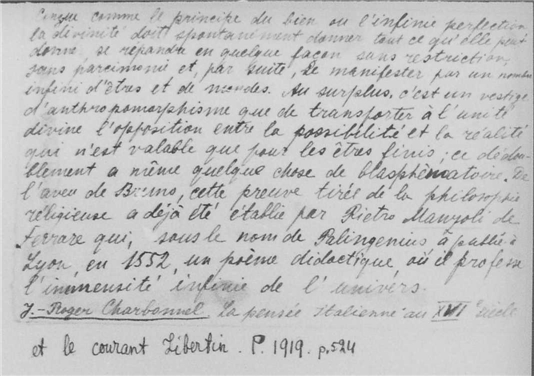 comme le principe du bien ou l'infinie perfection
la divinité doit spontanément donner tout ce qu'elle peut
donner, se répandre en quelque façon sans restriction,
sans parcimonie et, par suite, se manifester par un nombre
infini d'êtres et de mondes. Au surplus, c'est un vestige
d'anthropomorphisme que de transporter à l'unité
divine l'opposition entre la possibilité et la réalité
qui n'est valable que pour les êtres finis; ce dédou-
blement a même quelque chose de blasphématoire. De
l'aveu de Bruno, cette preuve tirée de la philosophie
religieuse a déjà été établie par Pietro Manzoli de
Ferrare qui, sous le nom de Palingenius a publié à
Lyon, en 1552, un poème didactique où il professe
l'immensité infinie de l'univers.
J.-Roger Charbonnel. La pensée italienne au XVIe siècle
et le courant libertin. P. 1919. p. 524